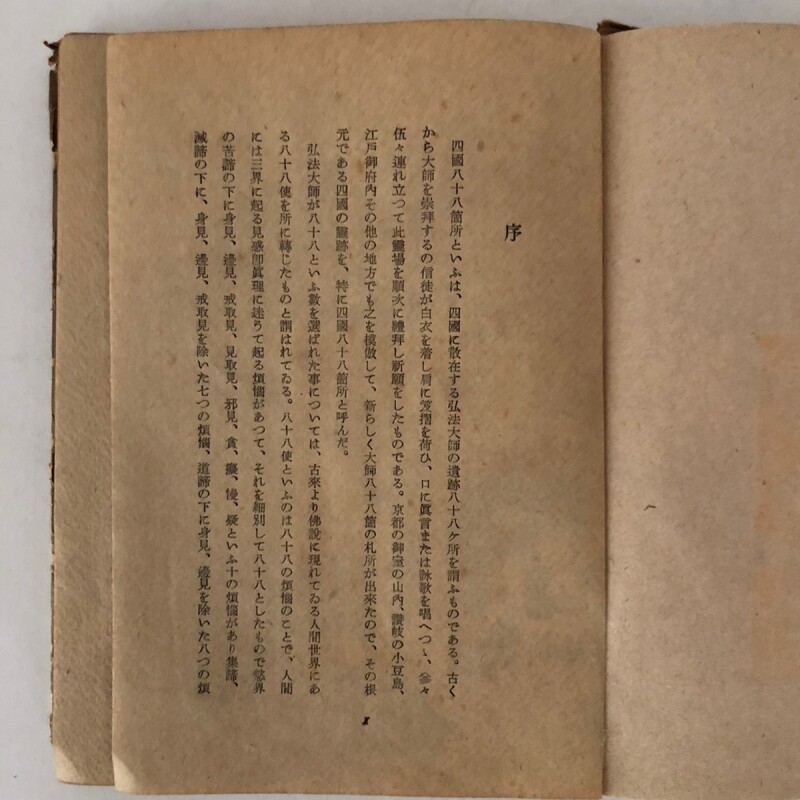 序
四國八十八箇所といふは、四國に散在する弘法大師の遺跡八十八ケ所を謂ふものである。古く
から大師を崇拜するの信徒が白衣を着し肩に笈摺を荷ひ、口に眞言または詠歌を唱へつゝ、參々
伍々連れ立つて此靈場を順次に禮拜し祈願をしたものである。京都の御室の山內、讚岐の小豆島、
江戶御府內その他の地方でも之を模倣して、新らしく大師八十八箇の札所が出來たので、その根
元である四國の靈跡を、特に四國八十八箇所と呼んだ。
弘法大師が八十八といふ數を選ばれた事については、古來より佛說に現れてゐる人間世界にあ
る八十八使を所に轉じたものと謂はれてゐる。八十八使といふのは八十八の煩惱のことで、人間
には三界に起る見惑卽眞理に迷うて起る煩惱があつて、それを細別して八十八としたもので慾界
の苦諦の下に身見、邊見、戒取見、見取見、邪見、貪、癡、慢、疑といふ十の煩惱があり集諦、
滅諦の下に、身見、邊見、戒取見を除いた七つの煩惱、道諦の下に身見、邊見を除いた八つの煩
1